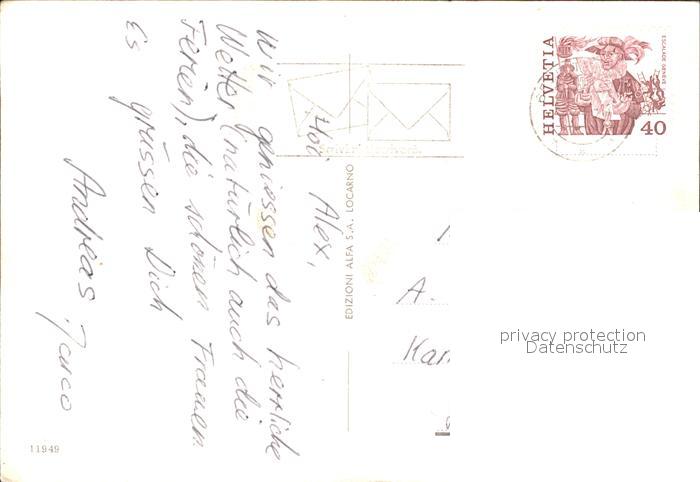 Hoi Alex,
Wir geniessen das herrliche
Wetter (natürlich auch die
Ferien), die schönen Frauen.
Es grüssen Dich
Andreas
EDIZIONI ALFA S.A. LOCARNO
11949
HELVETIA
ESCALADE GENÈVE
40
A.
Kan
privacy protection
Datenschutz